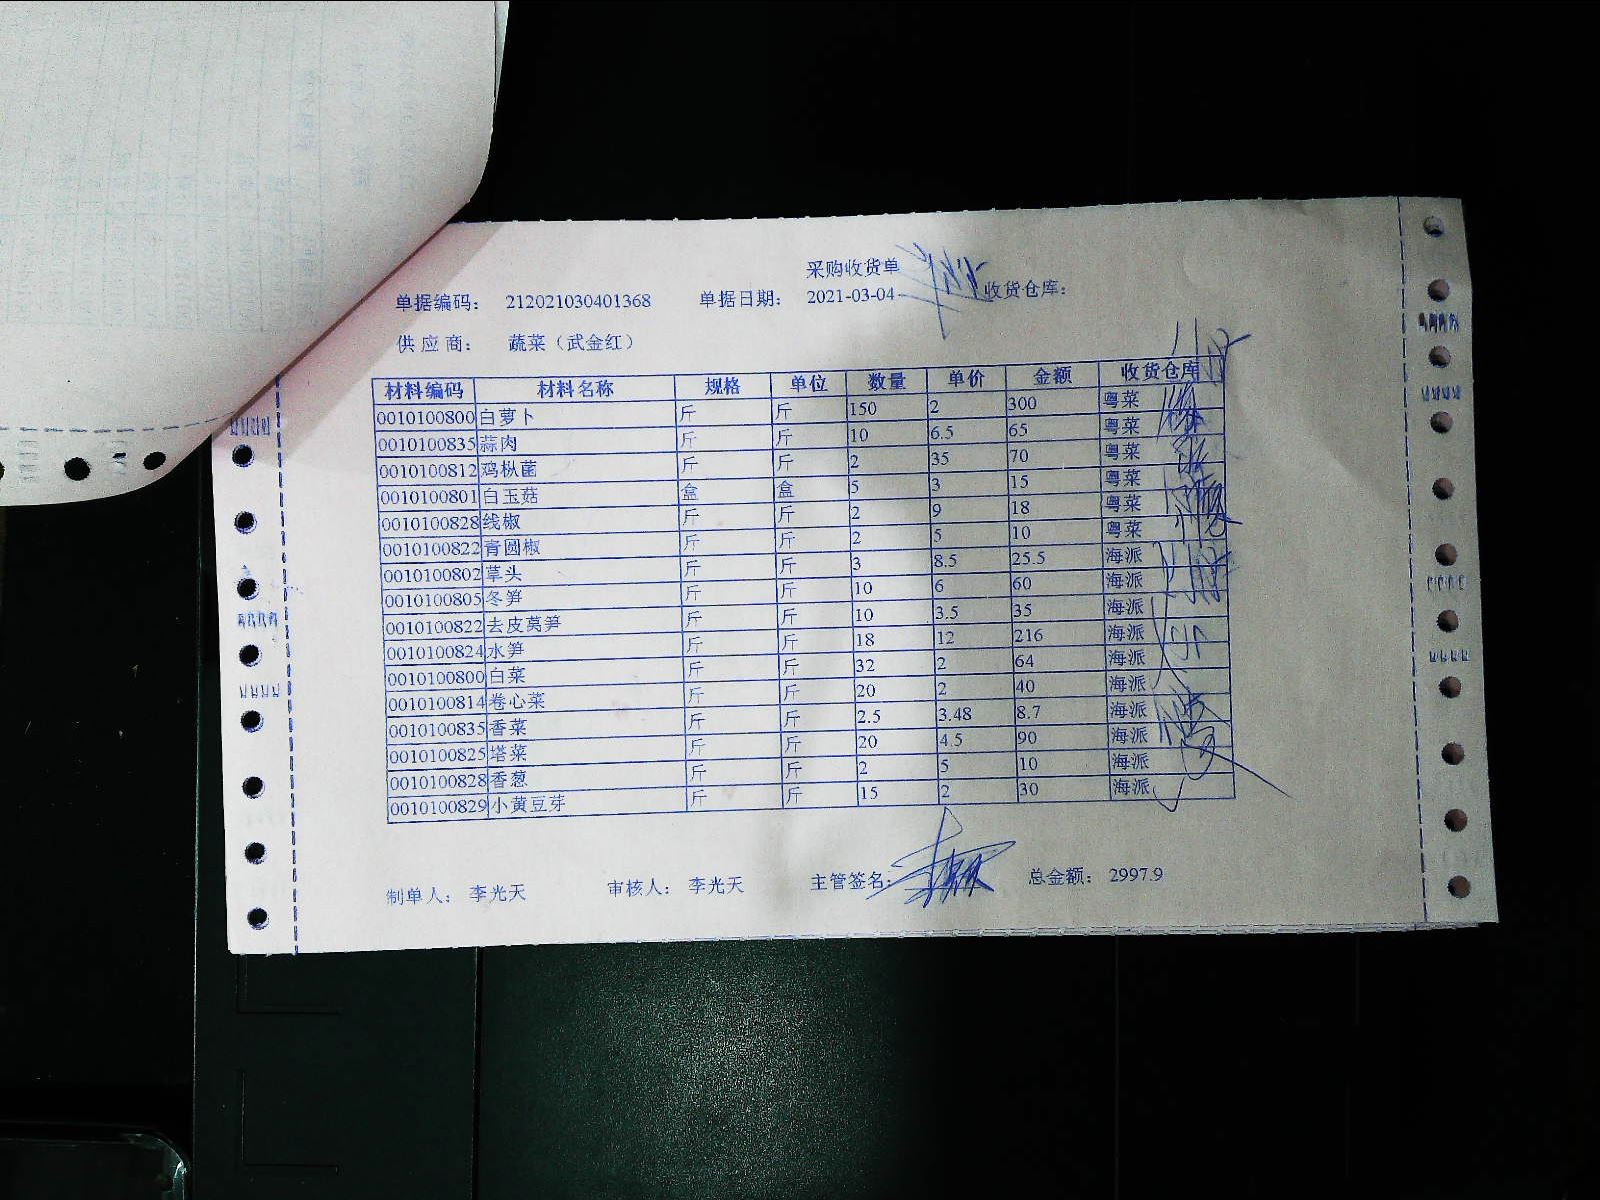 采购收货单
单据编码： 212021030401368 单据日期： 2021-03-04 收货仓库：
供 应 商： 蔬菜（武金红）
材料编码 材料名称 规格 单位 数量 单价 金额 收货仓库
0010100800 白萝卜 斤 斤 150 2 300 粤菜
0010100835 蒜肉 斤 斤 10 6.5 65 粤菜
0010100812 鸡枞菌 斤 斤 2 35 70 粤菜
0010100801 白玉菇 盒 盒 5 3 15 粤菜
0010100828 线椒 斤 斤 2 9 18 粤菜
0010100822 青圆椒 斤 斤 2 5 10 粤菜
0010100802 草头 斤 斤 3 8.5 25.5 海派
0010100805 冬笋 斤 斤 10 6 60 海派
0010100822 去皮莴笋 斤 斤 10 3.5 35 海派
0010100824 水笋 斤 斤 18 12 216 海派
0010100800 白菜 斤 斤 32 2 64 海派
0010100814 卷心菜 斤 斤 20 2 40 海派
0010100835 香菜 斤 斤 2.5 3.48 8.7 海派
0010100825 塔菜 斤 斤 20 4.5 90 海派
0010100828 香葱 斤 斤 2 5 10 海派
0010100829 小黄豆芽 斤 斤 15 2 30 海派
制单人： 李光天 审核人： 李光天 主管签名： 总金额： 2997.9